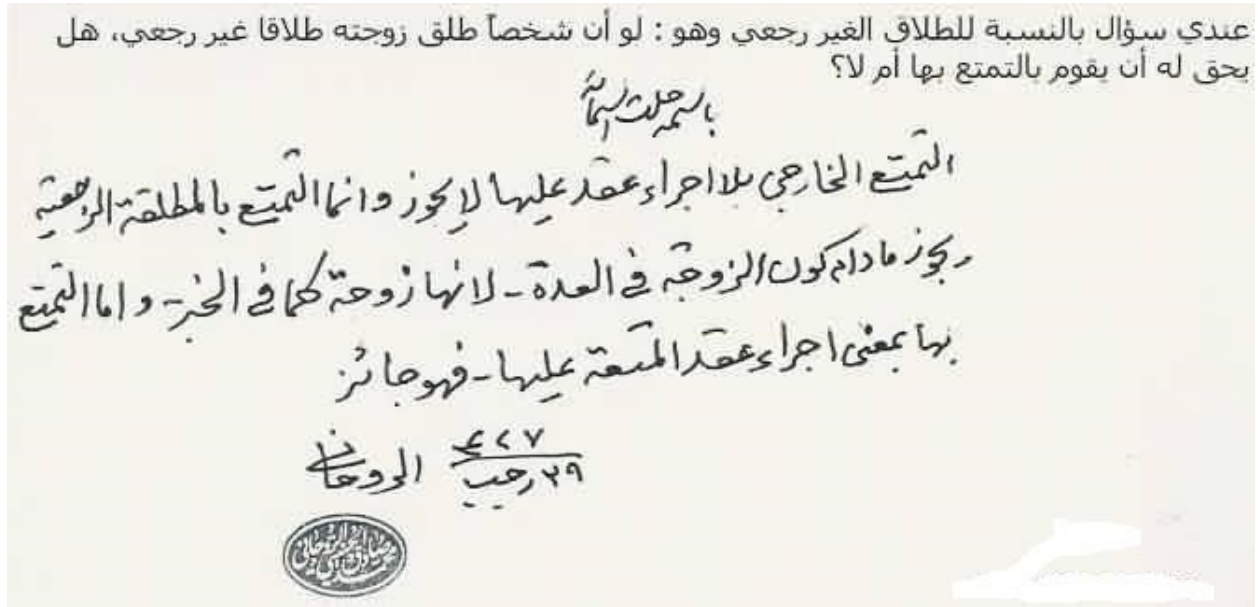 عندي سؤال بالنسبة للطلاق الغير رجعي وهو : لو أن شخصاً طلق زوجته طلاقا غير رجعي، هل
يحق له أن يقوم بالتمتع بها أم لا؟
باسمه جلت اسمائه
التمتع الخارجي بلا اجراء عقد عليها لا يجوز وانما التمتع بالمطلقة الرجعية
يجوز مادام كون الزوجة في العدة - لانها زوجة كما في الخبر - واما التمتع
بها بمعنى اجراء عقد المتعة عليها - فهو جائز
٤٢٧
٢٩ رجب الروحاني